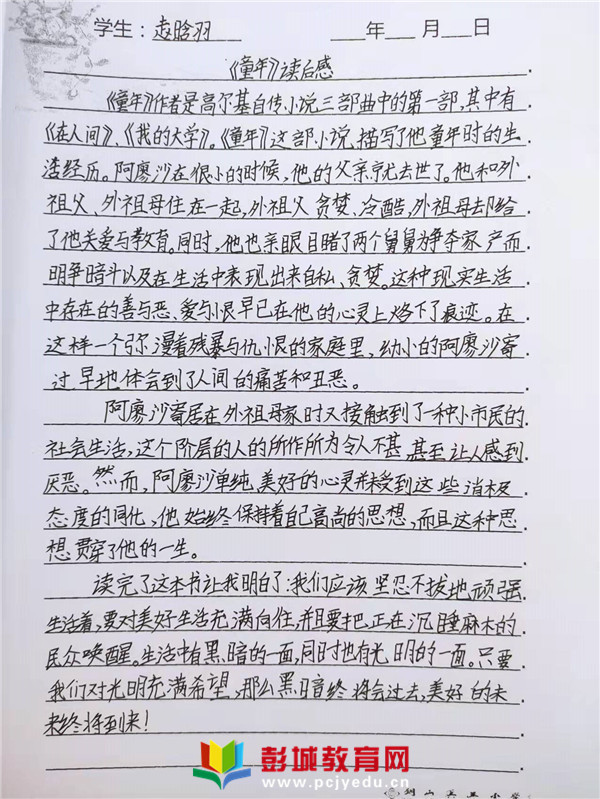 学生：赵晗羽 ___年___月___日
《童年》读后感
《童年》作者是高尔基自传小说三部曲中的第一部，其中有
《在人间》、《我的大学》。《童年》这部小说，描写了他童年时的生
活经历。阿廖沙在很小的时候，他的父亲就去世了。他和外
祖父、外祖母住在一起，外祖父贪婪、冷酷，外祖母却给
了他关爱与教育。同时，他也亲眼目睹了两个舅舅为争夺家产而
明争暗斗以及在生活中表现出来自私、贪婪。这种现实生活
中存在的善与恶、爱与恨早已在他的心灵上烙下了痕迹。在
这样一个弥漫着残暴与仇恨的家庭里，幼小的阿廖沙
过早地体会到了人间的痛苦和丑恶。
阿廖沙寄居在外祖母家时又接触到了一种小市民的
社会生活，这个阶层的人的所作所为令人不甚，甚至让人感到
厌恶。然而，阿廖沙单纯、美好的心灵并未受到这些消极
态度的同化，他始终保持着自己高尚的思想，而且这种思
想贯穿了他的一生。
读完了这本书让我明白了：我们应该坚忍不拔地顽强
生活着，要对美好生活充满向往，并且要把正在沉睡麻木的
民众唤醒。生活中有黑暗的一面，同时也有光明的一面。只要
我们对光明充满希望，那么黑暗终将会过去，美好的未
来终将到来！
彭城教育网
www.pcjyedu.cn